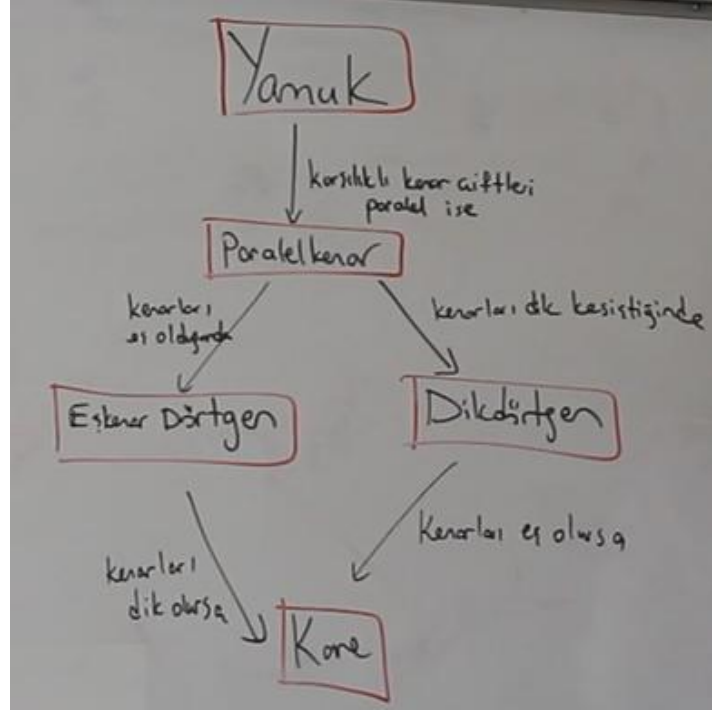 Yamuk
karşılıklı kenar çiftleri
paralel ise
Paralelkenar
kenarları
eş olduğunda
kenarları dik kesiştiğinde
Eşkenar Dörtgen
Dikdörtgen
kenarları
dik olursa
Kenarları eş olursa
Kare